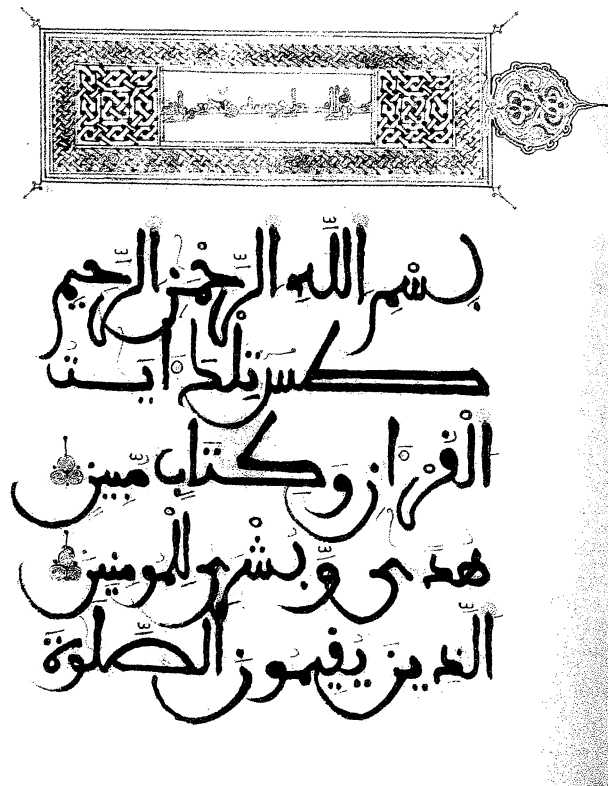 بِسْمِ اللَّهِ الرَّحْمٰنِ الرَّحِيمِ
طسَ تِلْكَ ءَايَٰتُ
الْقُرْءَانِ وَكِتَابٍ مُّبِينٍ
هُدًى وَبُشْرَىٰ لِلْمُومِنِينَ
الَّذِينَ يُقِيمُونَ الصَّلَوٰةَ